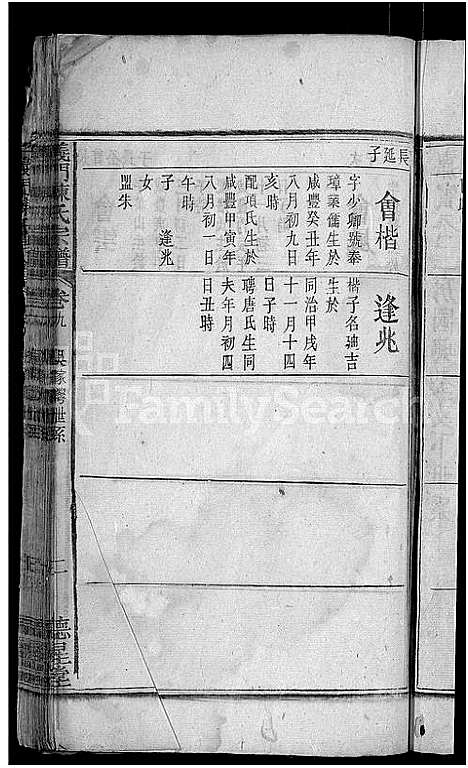 長延子
會楷
字少卿號泰
璋業儒生於
咸豐癸丑年
八月初九日
亥時
配項氏生於
咸豐甲寅年
八月初一日
午時
子 逢兆
女
盟朱
逢兆
楷子名廸吉
生於
同治甲戌年
十一月十四
日子時
聘唐氏生同
夫年月初四
日丑時
義門陳氏宗譜
卷九
世系
二
德星堂
FamilySearch